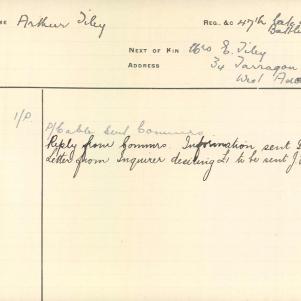 ME Arthur Tiley REG. &C 47th
NEXT OF KIN Mrs E. Tiley
ADDRESS 34 Tarragon
West
1/P. P/Cable sent Commrs.
Reply from Commrs. Information sent
Letter from Inquirer desiring £1 to be sent